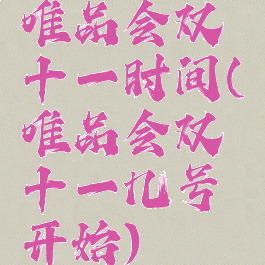 唯品会双
十一时间(
唯品会双
十一九号
开始)